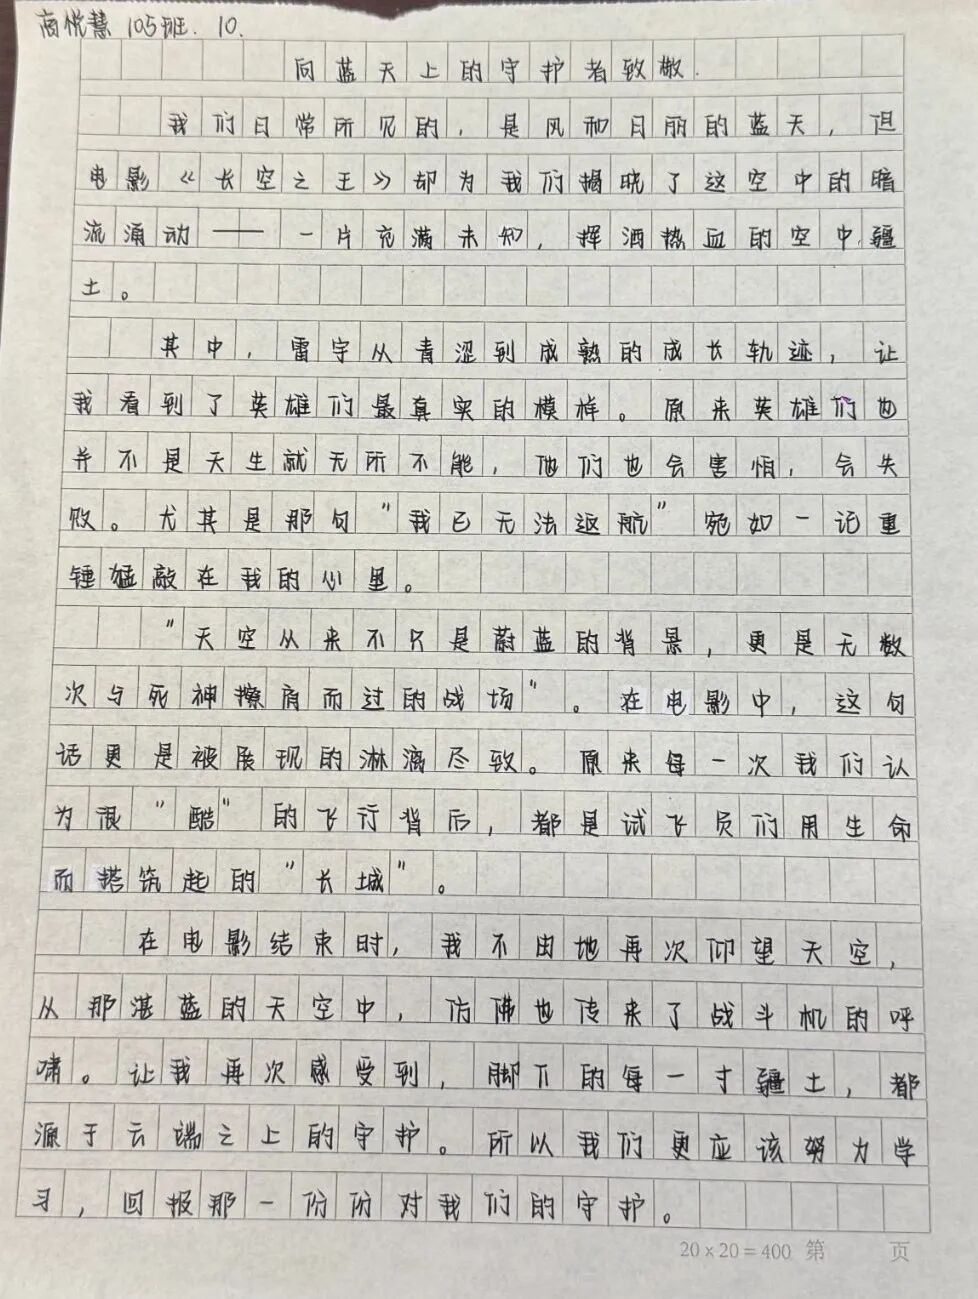 商悦慧 105班. 10.
向蓝天上的守护者致敬.
我们日常所见的，是风和日丽的蓝天，但
电影《长空之王》却为我们揭晓了这空中的暗
流涌动——一片充满未知，挥洒热血的空中疆
土。
其中，雷宇从青涩到成熟的成长轨迹，让
我看到了英雄们最真实的模样。原来英雄们也
并不是天生就无所不能，他们也会害怕，会失
败。尤其是那句"我已无法返航"宛如一记重
锤猛敲在我的心里。
"天空从来不只是蔚蓝的背景，更是无数
次与死神擦肩而过的战场"。在电影中，这句
话更是被展现的淋漓尽致。原来每一次我们认
为很"酷"的飞行背后，都是试飞员们用生命
而搭筑起的"长城"。
在电影结束时，我不由地再次仰望天空，
从那湛蓝的天空中，仿佛也传来了战斗机的呼
啸。让我再次感受到，脚下的每一寸疆土，都
源于云端之上的守护。所以我们更应该努力学
习，回报那一份份对我们的守护。
20×20=400 第 页